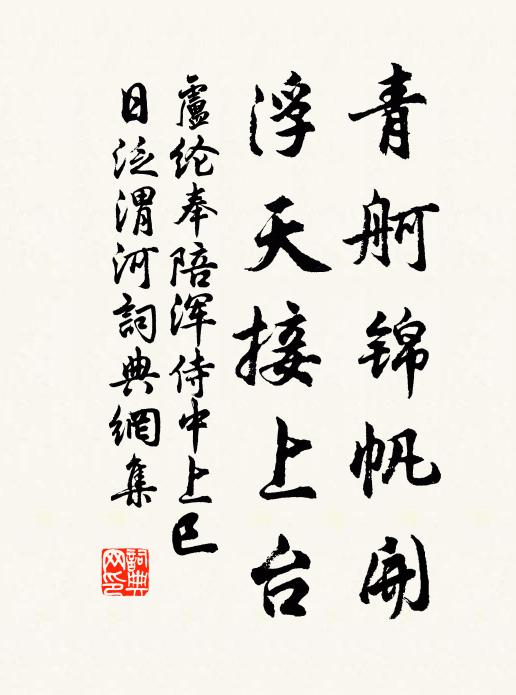 青舸锦帆開
浮天接上台
盧纶奉陪浑侍中上巳
日泛渭河詞典網集
詞典网印